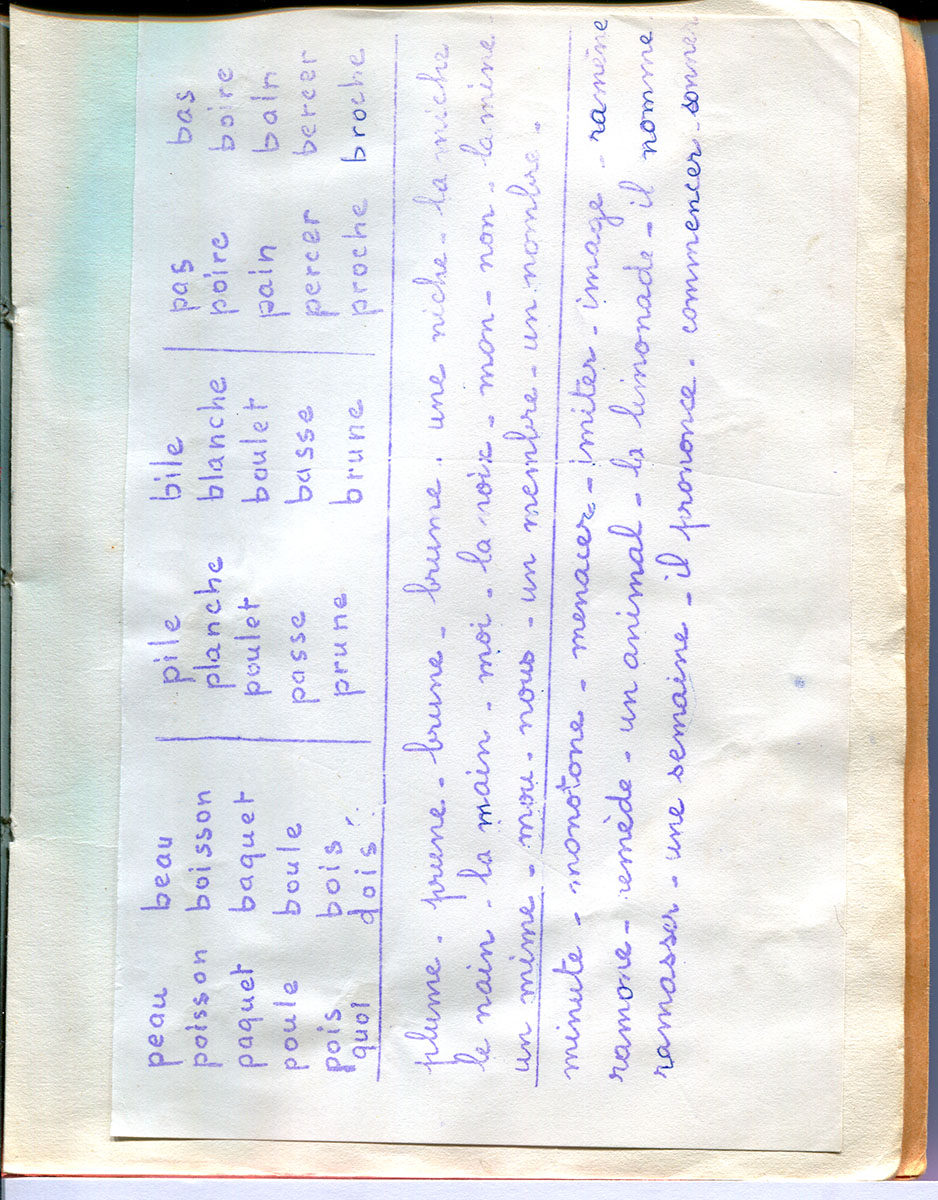 peau beau pile bile pas bas
poisson boisson planche blanche poire boire
paquet baquet poulet boulet pain bain
poule boule passe basse percer bercer
pois bois prune brune proche broche
quoi dois
plume - prune - brune - brume - une niche - la miche
le nain - la main - moi - la noix - mon - non - la mine
un mime - mou - nous - un membre - un nombre.
minute - monotone - menacer - imiter - image - ramène
ramone - remède - un animal - la limonade - il nomme
ramasser - une semaine - il prononce - commencer - sonner